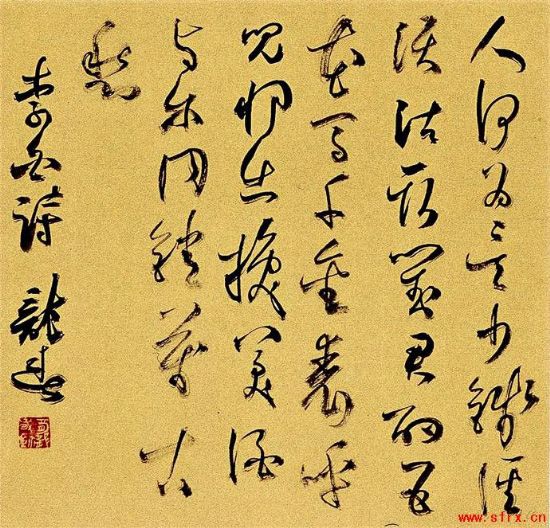 人何為言少錢徑
須沽取對君酌五
花馬千金裘呼
兒將出換美酒
與爾同銷萬古
愁
李白詩
www.sfrx.cn